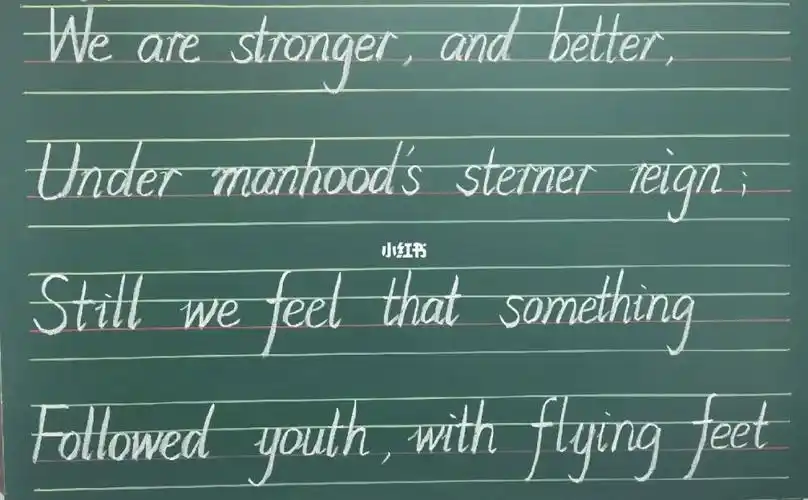 We are stronger, and better,
Under manhood's sterner reign;
小红书
Still we feel that something
Followed youth, with flying feet